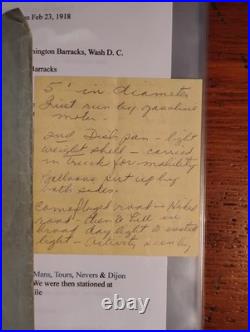 n Feb 23, 1918
hington Barracks, Wash D. C.
Barracks
5' in diameter
First run by gasoline
motor.
2nd Dish pan - light
weight shell - carried
in truck for mobility
Balloons sent up by
both sides.
Camoflaged road - Naked
road - then to Hill in
broad day light to
light - Activity seen by
Mans, Tours, Nevers & Dijon
We were then stationed at
ile